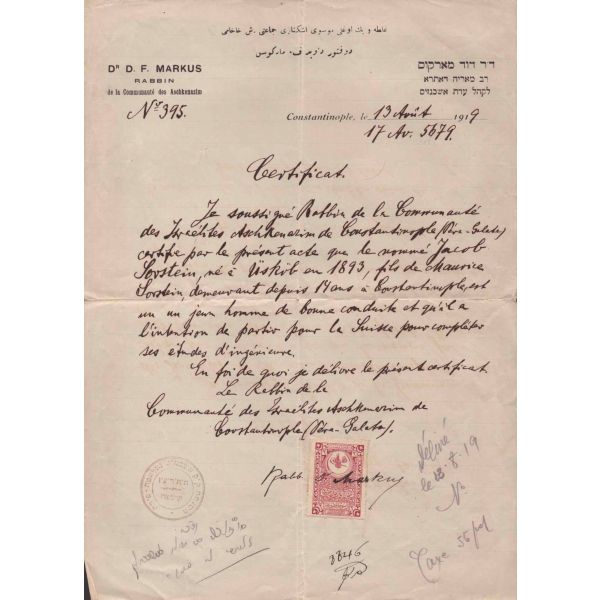 Dr D. F. MARKUS
RABBIN
de la Communauté des Aschkenazim
ד״ר דוד מארקוס
רב מאריה דאתרא
לקהל עדת אשכנזים
No 395.
Constantinople, le 13 Août 1919
17 Av. 5679.
Certificat.
Je soussigné Rabbin de la Communauté
des Israélites Aschkenazim de Constantinople (Péra-Galata)
certifie par le présent acte que le nommé Jacob
Sorstein, né à Uskub en 1893, fils de Maurice
Sorstein, demeurant depuis 14 ans à Constantinople, est
un un jeun homme de bonne conduite et qu'il a
l'intention de partir pour la Suisse pour compléter
ses études d'ingénieure.
En foi de quoi je délivre le présent certificat
Le Rabbin de la
Communauté des Israélites Aschkenazim de
Constantinople (Péra-Galata).
Rabb. D Markus
délivré
le 28.8.19
No
Taxe 55 pol